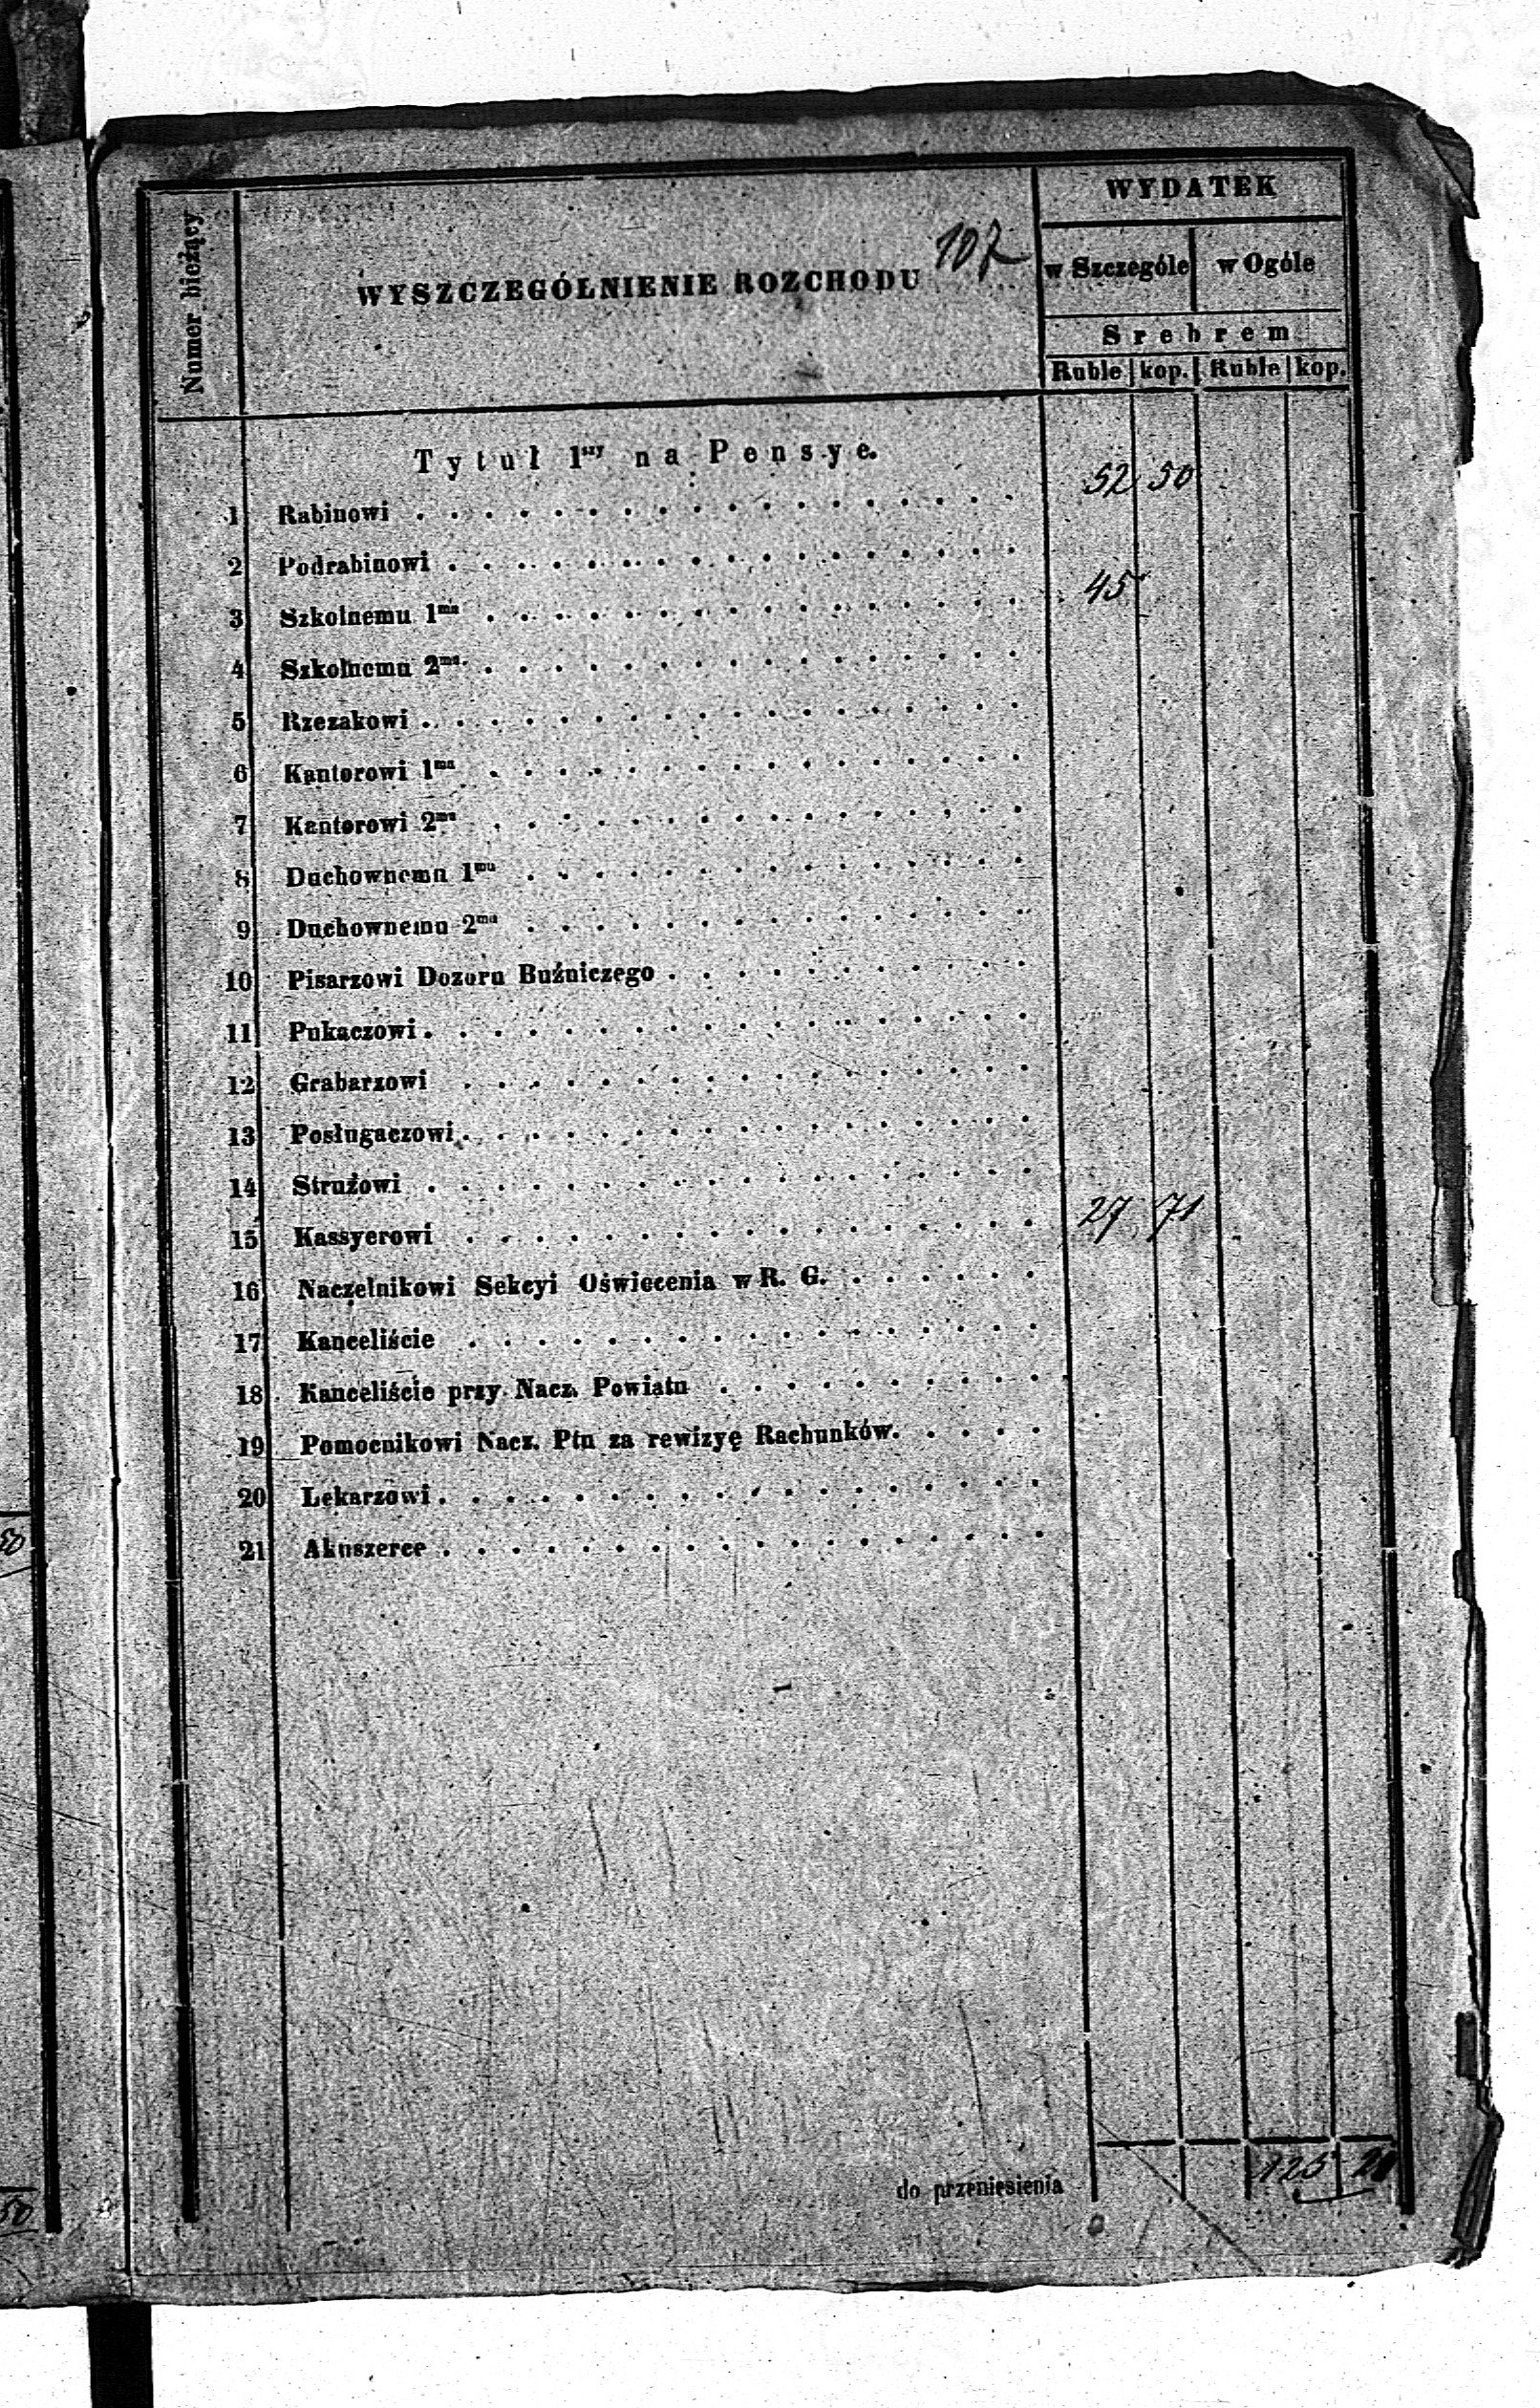 107
Numer bieżący
WYSZCZEGÓLNIENIE ROZCHODU
WYDATEK
w Szczególe w Ogóle
Srebrem
Ruble kop. Ruble kop.
Tytuł 1szy na Pensye.
1 Rabinowi . . . . . . . . 52 50
2 Podrabinowi . . . . . . . .
3 Szkolnemu 1mu . . . . . . . . 45
4 Szkolnemu 2mu . . . . . . . .
5 Rzezakowi . . . . . . . .
6 Kantorowi 1mu . . . . . . . .
7 Kantorowi 2mu . . . . . . . .
8 Duchownemu 1mu . . . . . . . .
9 Duchownemu 2mu . . . . . . . .
10 Pisarzowi Dozoru Buźniczego . . . . . . . .
11 Pukaczowi . . . . . . . .
12 Grabarzowi . . . . . . . .
13 Posługaczowi . . . . . . . .
14 Strużowi . . . . . . . .
15 Kassyerowi . . . . . . . . 27 71
16 Naczelnikowi Sekcyi Oświecenia w R. G. . . . . . .
17 Kanceliście . . . . . . . .
18 Kanceliście przy Nacz. Powiatu . . . . . . . .
19 Pomocnikowi Nacz. Ptu za rewizyę Rachunków . . . . .
20 Lekarzowi . . . . . . . .
21 Akuszerce . . . . . . . .
do przeniesienia 125 21